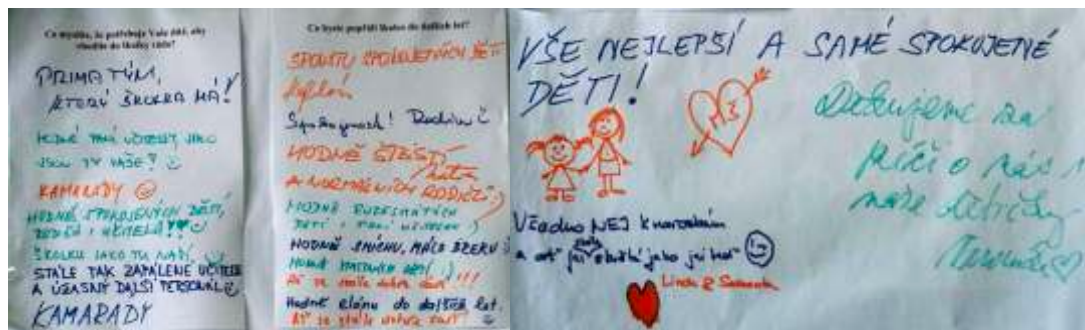 Co myslíte, že potřebuje Vaše dítě, aby
chodilo do školky rádo?
PRIMA TÝM,
KTERÝ ŠKOLKA MÁ!
HODNĚ PANÍ UČITELEK, JAKO
JSOU TY VAŠE!
KAMARÁDY
HODNĚ SPOKOJENÝCH DĚTÍ,
ŠKOLKU JAKO TU NAŠÍ,
STÁLE TAK ZAPÁLENÉ UČITELE
A ÚŽASNÝ DALŠÍ PERSONÁL
KAMARÁDY
Co byste popřáli školce do dalších let?
SPOUSTU SPOKOJENÝCH DĚTÍ
Spokojenost!
HODNĚ ŠTĚSTÍ
A NORMÁLNÍCH RODIČŮ :)
HODNĚ
DĚTÍ I PANÍ UČITELEK
HODNĚ SMÍCHU, MÁLO BREKU
HODNĚ DĚTÍ
Ať se stále dobře daří!!!
Hodně elánu do dalších let.
Ať se stále daří!
VŠE NEJLEPŠÍ A SAMÉ SPOKOJENÉ
DĚTI!
MŠ
Děkujeme za
péči o nás
naše dětičky
Všechno NEJ k narozeninám
a ať jsi stále jako jsi teď
Linda & Samanta